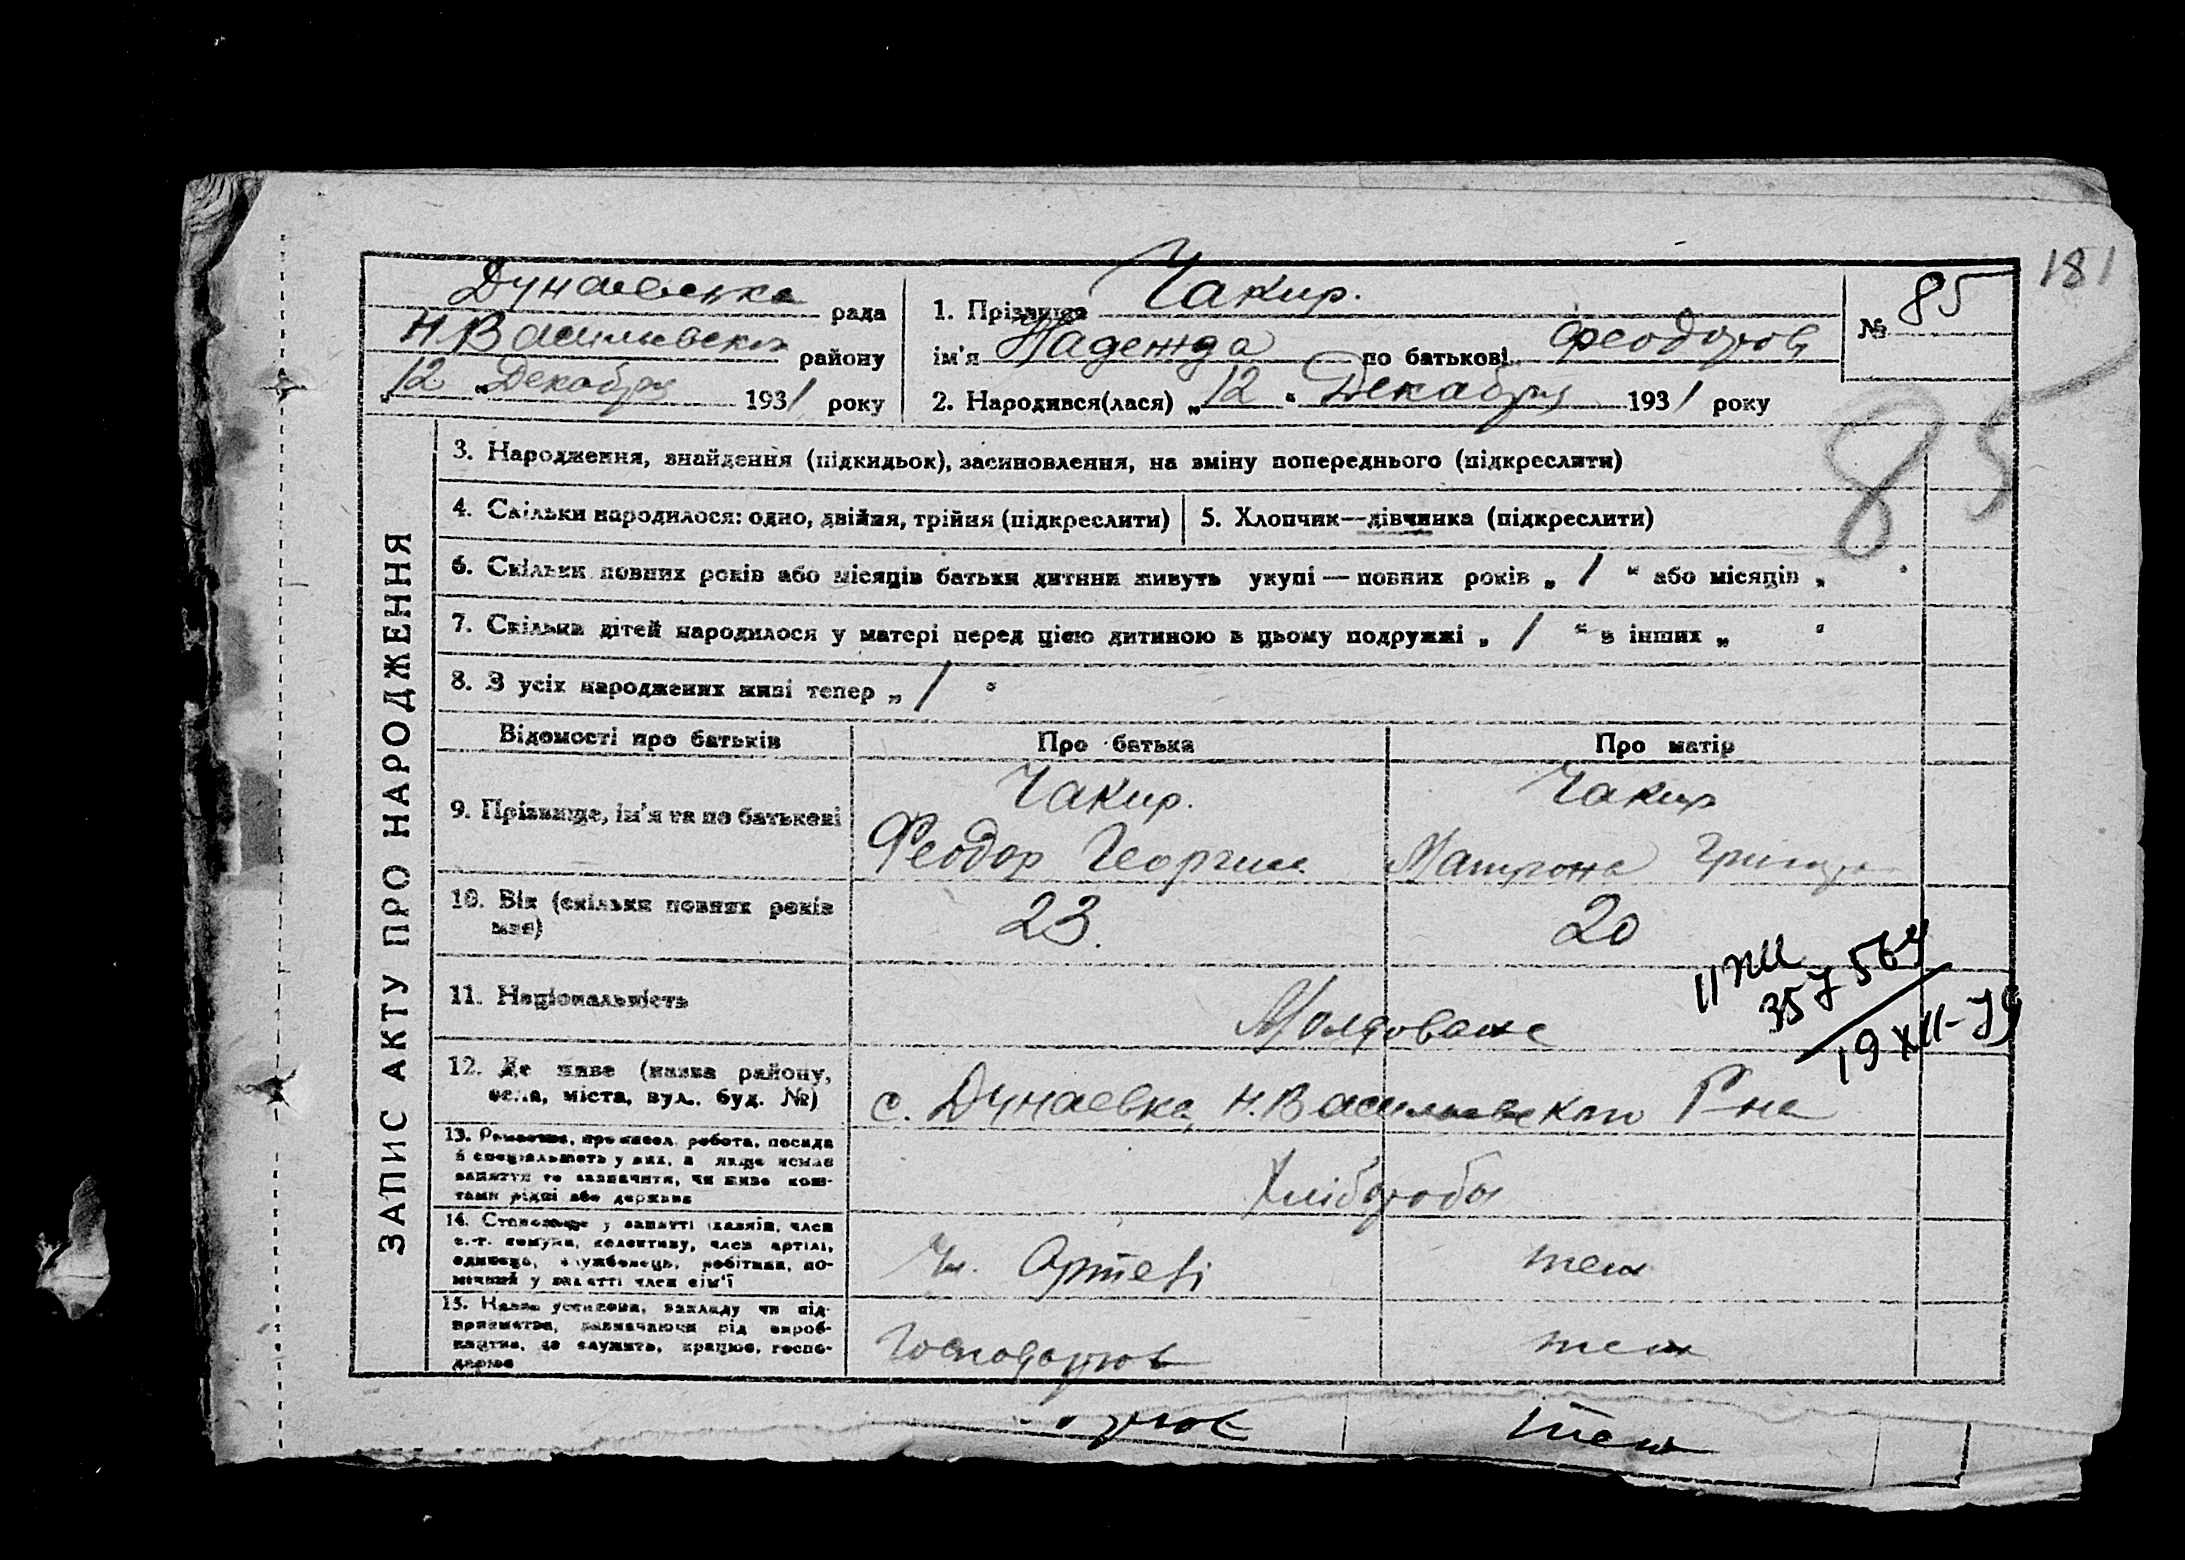 181
Дунаевська рада
Н.Василивского району
"12" Декабря 1931 року
1. Прізвище Чакир.
ім'я Надежда по батькові Феодоров
2. Народився(лася) "12" Декабря 1931 року
№ 85
85
ЗАПИС АКТУ ПРО НАРОДЖЕННЯ
3. Народження, знайдення (підкидьок), засиновлення, на зміну попереднього (підкреслити)
4. Скільки народилося: одно, двійня, трійня (підкреслити)
5. Хлопчик—дівчинка (підкреслити)
6. Скільки повних років або місяців батьки дитини живуть укупі — повних років „ 1 “ або місяців „ “
7. Скільки дітей народилося у матері перед цією дитиною в цьому подружжі „ 1 “ в інших „ “
8. З усіх народжених живі тепер „ 1 “
Відомості про батьків
Про батька
Про матір
9. Прізвище, ім'я та по батькові
Чакир.
Феодор Георгие.
Чакир
Матрона Григор
10. Вік (скільки повних років має)
23.
20
11. Національність
Молдоване
357564
19 XII-79
12. Де живе (назва району,
села, міста, вул., буд. №)
с. Дунаевка, Н.Васильевского Р-на
13. Ремество, промисел, робота, посада
й спеціальність у них, а якще немає
заняття то зазначити, чи живе кош-
тами рідні або держави
Хлібороби
14. Становище у занятті (хазяїн, член
с.-г. комуни, колективу, член артілі,
одинець, службовець, робітник, по-
мічний у занятті член сім'ї
Чл. Артелі
теж
15. Назва установи, закладу чи під-
приємства, зазначаючи рід вироб-
ництва, де служить, працює, госпо-
дарює
Господарює
теж
теж